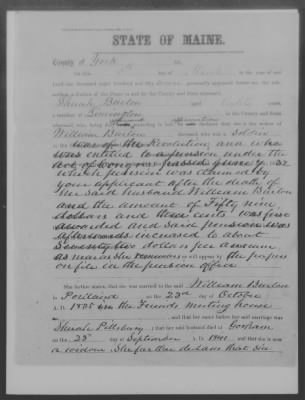 STATE OF MAINE.
County of York ss.
On this day of March in the year of our
Lord one thousand eight hundred and fifty personally appeared before me, the sub-
scriber, a Justice of the Peace in and for the County and State aforesaid
Shuah Burton aged eighty years,
a resident of Limington in the County and State
aforesaid, who, being duly affirmation that she is the widow of
William Burton deceased, who was a Soldier
in the war of the Revolution, and who
was entitled to a pension under the
act of Congress passed June 7 1832
which pension was claimed by
your applicant after the death of
her said husband William Burton
and the amount of Fifty nine
dollars and three cents was first
awarded and said pension was
afterwards increased to about
Seventy two dollars per annum
as near as she remembers as will appear by the papers
on file in the pension office
She further states, that she was married to the said William Burton
in Portland on the 23d day of October
A. D. 1825 in the Friends meeting house
and that her name before her said marriage was
Shuah Pillsbury; that her said husband died at Gorham
on the 25 day of September A. D. 1841 and she is now
a widow. She further declares that she